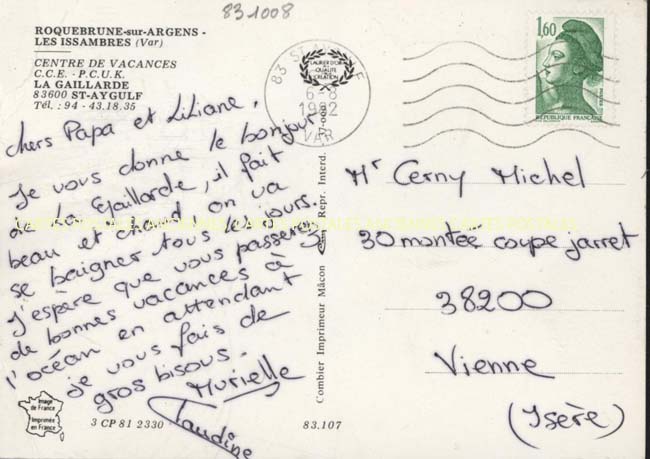 83.1008
ROQUEBRUNE-sur-ARGENS -
LES ISSAMBRES (Var)
CENTRE DE VACANCES
C.C.E. - P.C.U.K.
LA GAILLARDE
83600 ST-AYGULF
Tél. : 94 - 43.18.35
chers Papa et Liliane,
Je vous donne le bonjour
de La Gaillarde, il fait
beau et chaud on va
se baigner tous les jours.
J'espère que vous passerez
de bonnes vacances à
l'océan en attendant
je vous fais de
gros bisous.
Murielle
Claudine
Image
de France
Imprimée
en France
3 CP 81 2330
83.107
Combier Imprimeur Mâcon
Repr. Interd.
83 ST
LAURIER D'OR
QUALITE
CREATION
6-8
1982
VAR
1,60
REPUBLIQUE FRANÇAISE
Mr Cerny Michel
30 montée coupe jarret
38200
Vienne
(Isère)